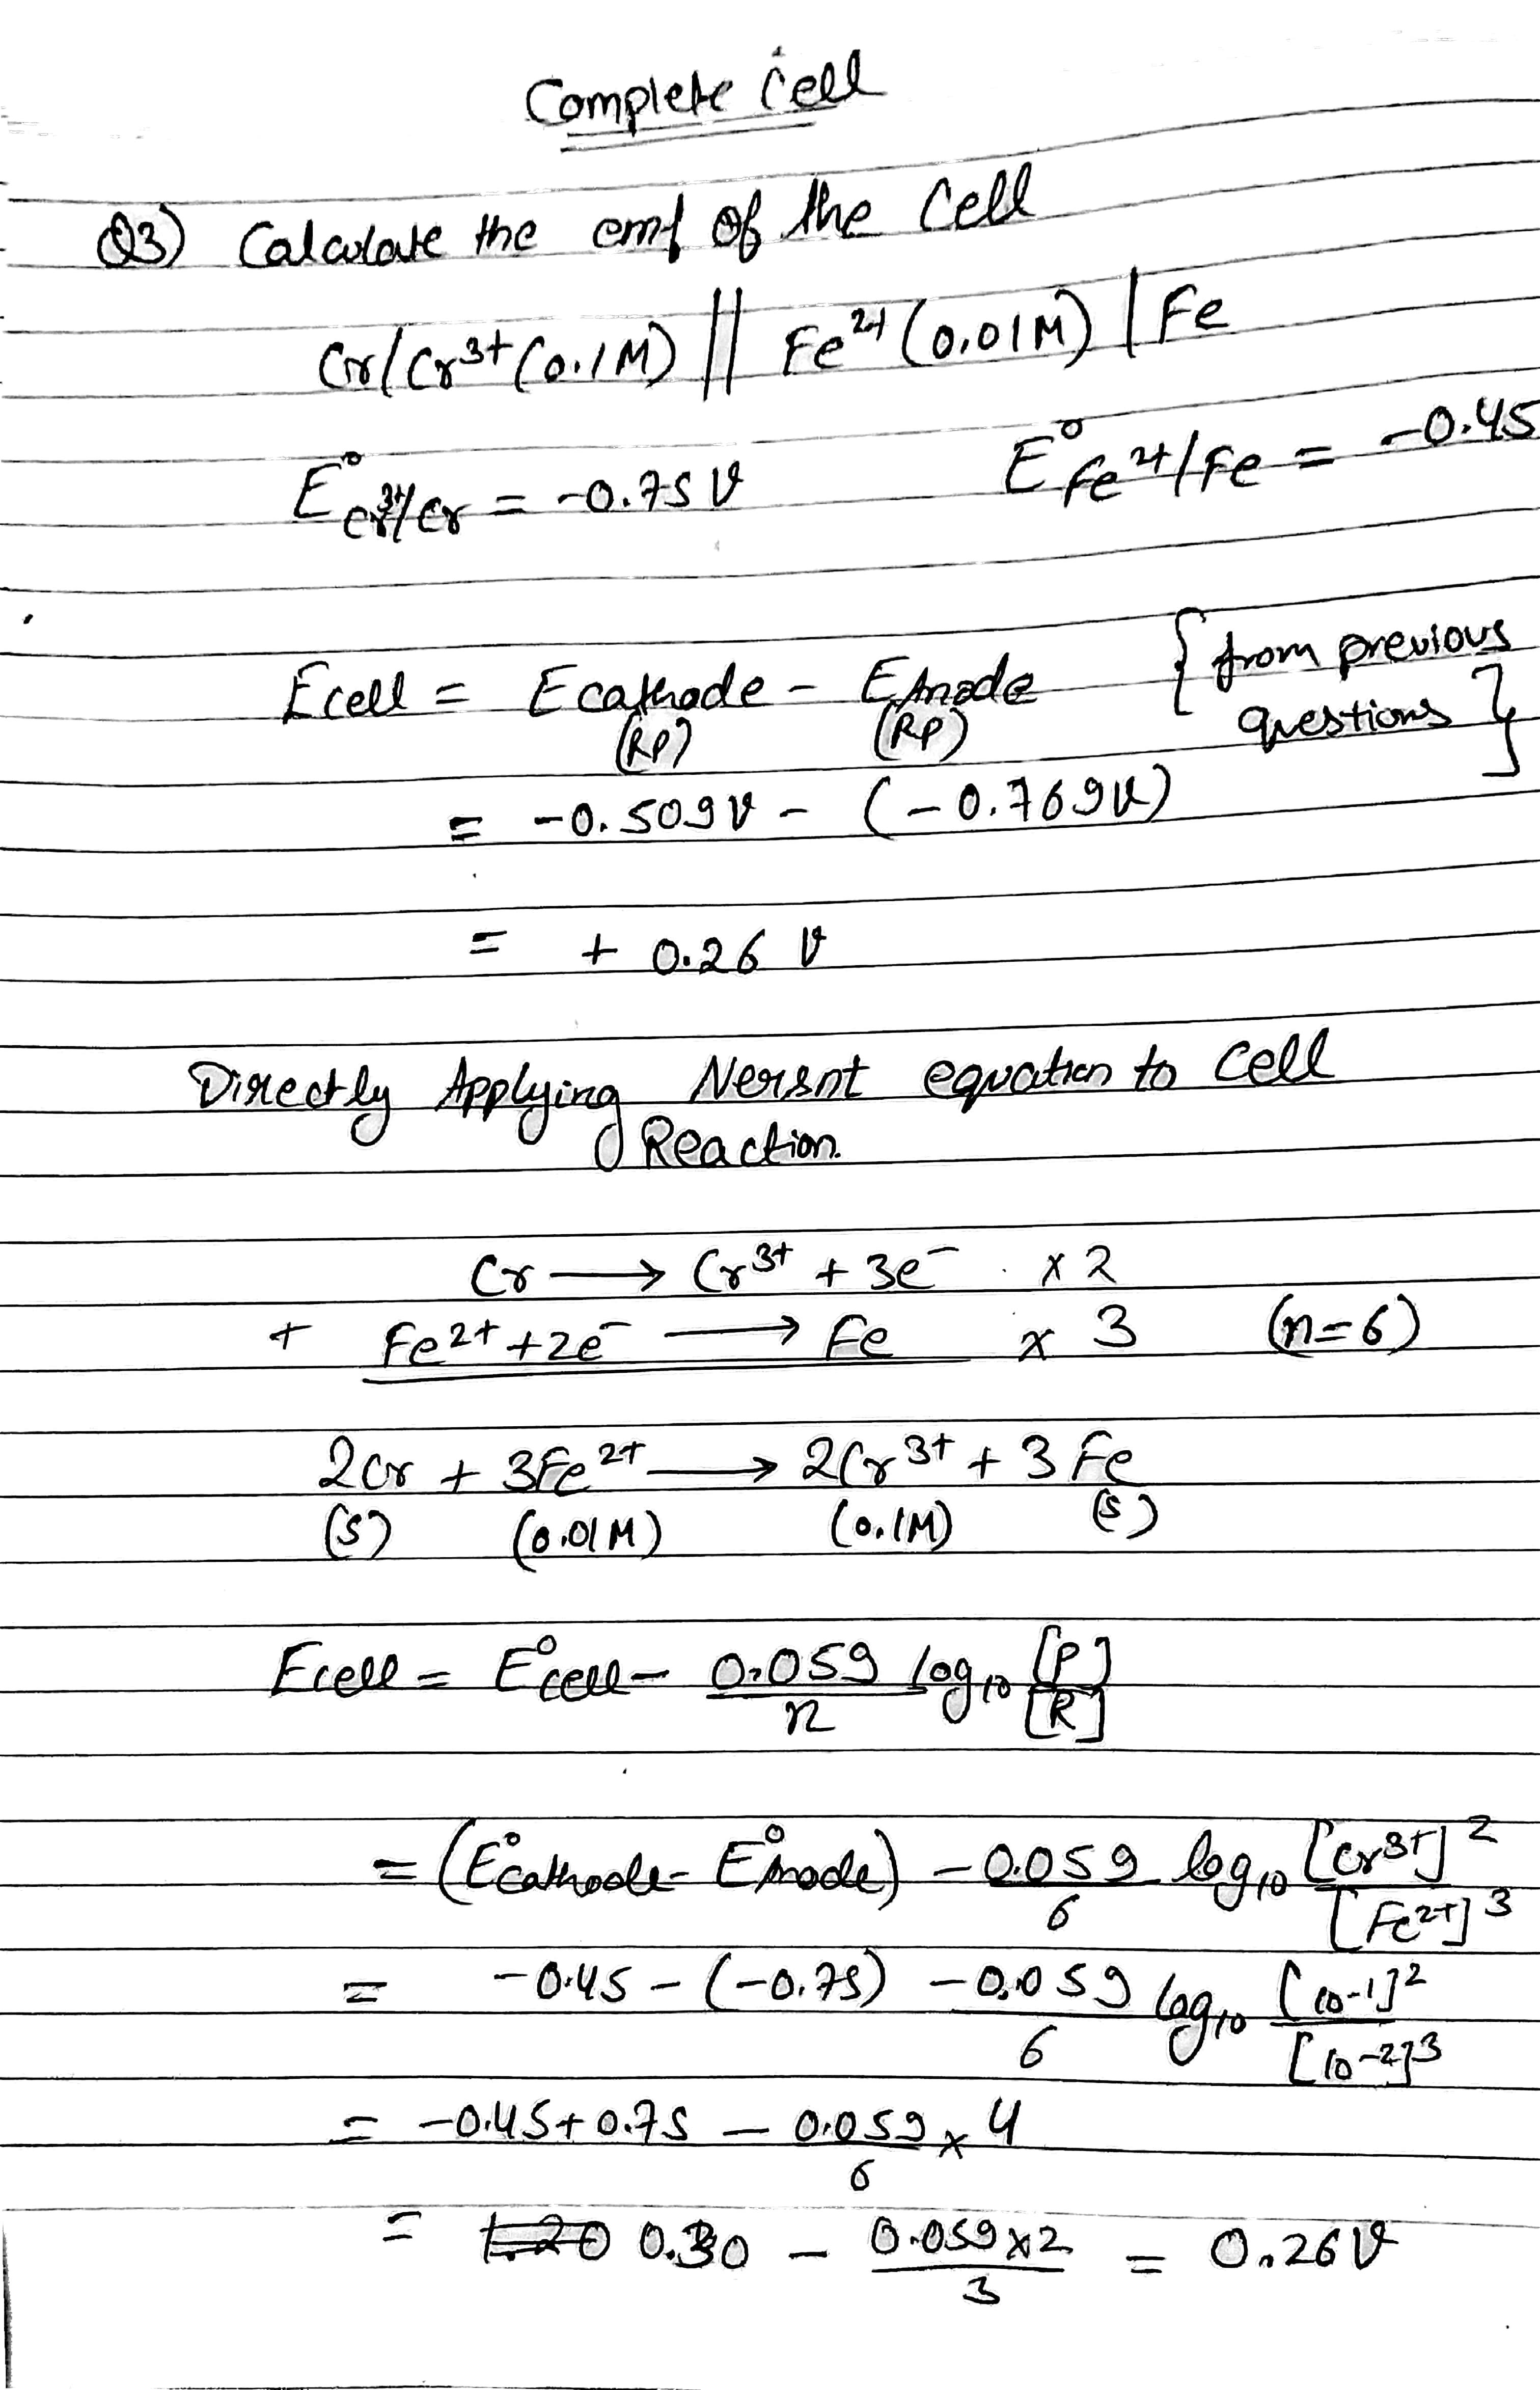 Complete Cell
Q3) Calculate the emf of the Cell
Cr/Cr³⁺(0.1M) || Fe²⁺(0.01M) | Fe
E°Cr³⁺/Cr = -0.75 V E°Fe²⁺/Fe = -0.45
Ecell = Ecathode - EAnode { from previous
(RP) (RP) questions }
= -0.509V - (-0.769V)
= + 0.26 V
Directly Applying Nersnt equation to Cell
Reaction.
Cr ⟶ Cr³⁺ + 3e⁻ x 2
+ Fe²⁺ + 2e⁻ ⟶ Fe x 3 (n=6)
2Cr + 3Fe²⁺ ⟶ 2Cr³⁺ + 3Fe
(S) (0.01M) (0.1M) (S)
Ecell = E°cell - 0.059/n log₁₀ [P]/[R]
= (E°cathode - E°Anode) - 0.059/6 log₁₀ [Cr³⁺]²/[Fe²⁺]³
= -0.45 - (-0.75) - 0.059/6 log₁₀ [10⁻¹]²/[10⁻²]³
= -0.45 + 0.75 - 0.059/6 x 4
= 0.30 - 0.059x2/3 = 0.26V